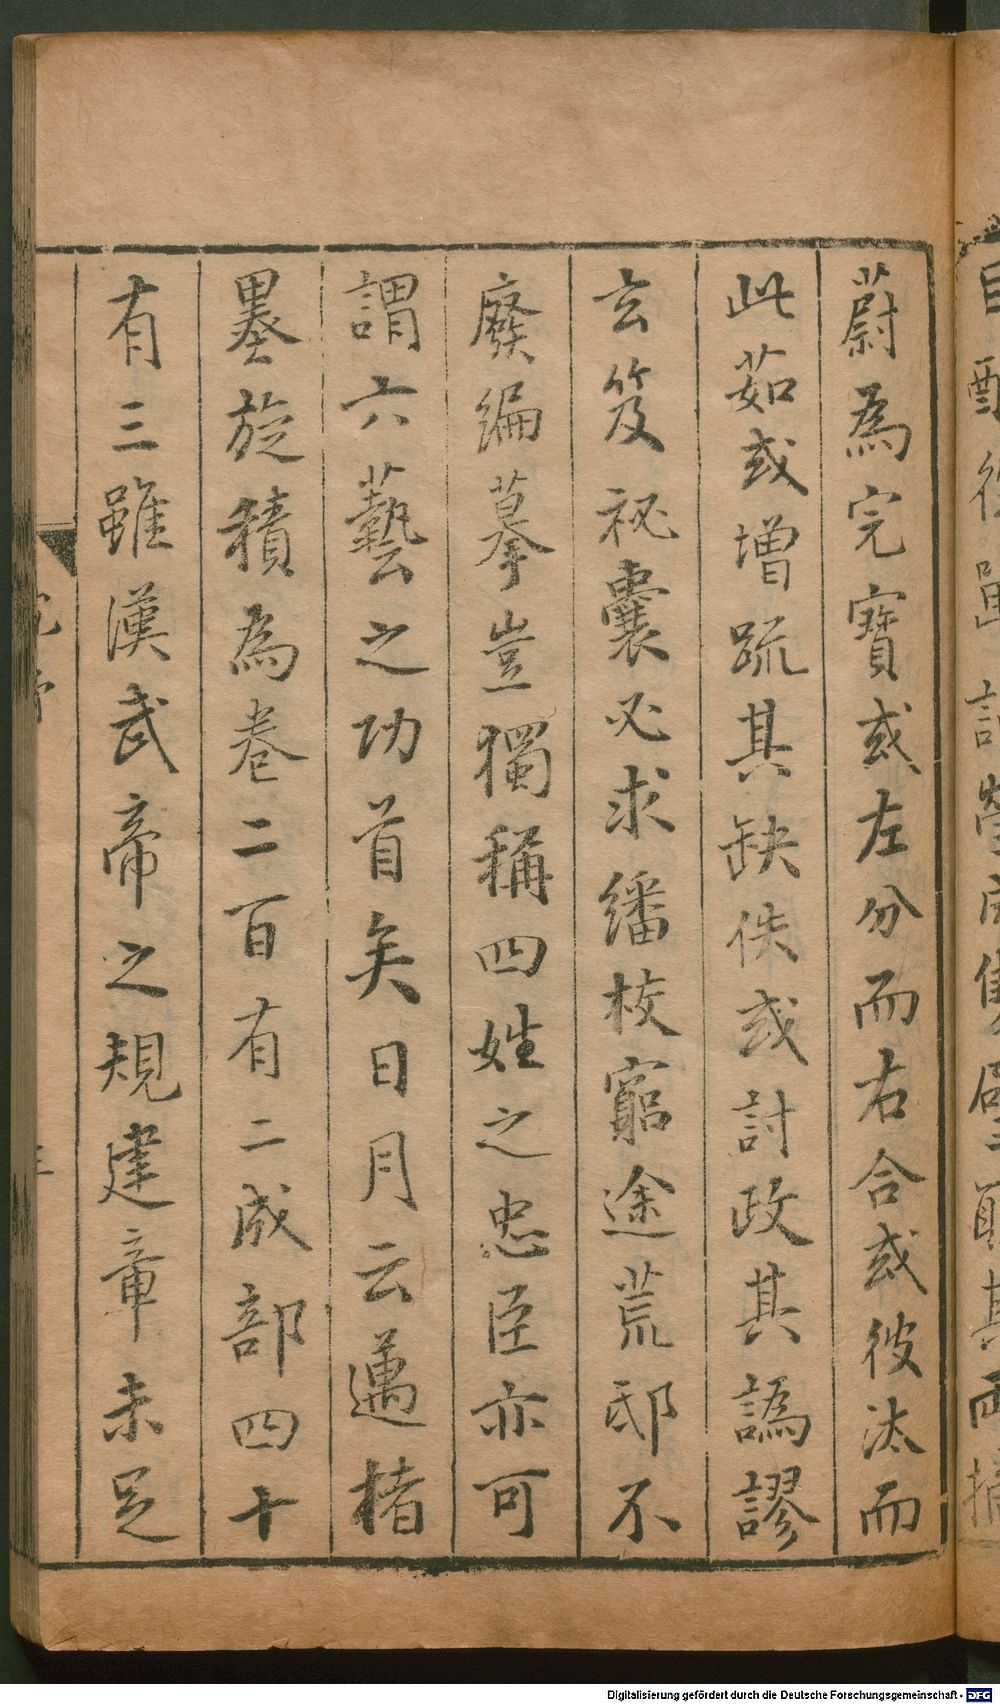 蔚為完寶或左分而右合或彼汰而
此茹或增疏其缺佚或討政其譌謬
玄笈祕囊必求繙校窮途荒邸不
廢編摹豈獨稱四姓之忠臣亦可
謂六藝之功首矣日月云邁楮
墨旋積為卷二百有二成部四十
有三雖漢武帝之規建章未足
Digitalisierung gefördert durch die Deutsche Forschungsgemeinschaft - DFG